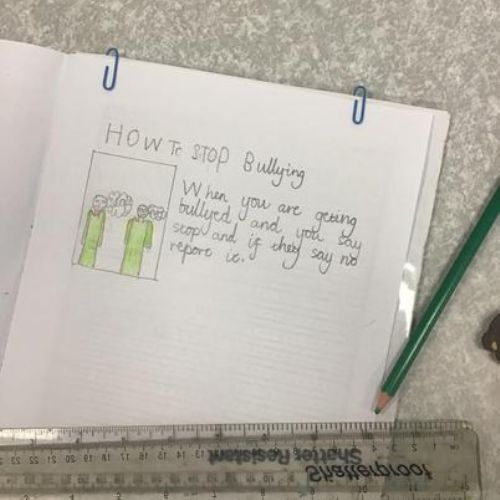 HOW To STOP Bullying
When you are geting
bullyed and you say
stop and if they say no
report it.
Shatter Resistant
Shatterproof